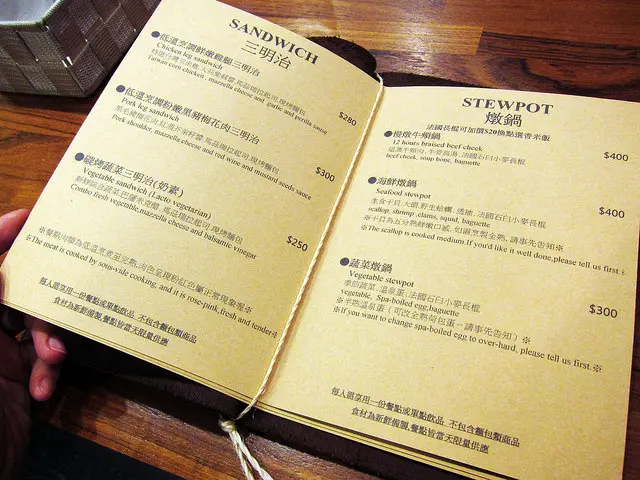 SANDWICH
三明治
●低溫烹調鮮嫩雞腿三明治
Chicken leg sandwich
Taiwan corn chicken, mazzella cheese and garlic and perilla sauce
$280
●低溫烹調粉嫩黑豬梅花肉三明治
Pork leg sandwich
Pork shoulder, mazzella cheese and red wine and mustard seeds sauce
$300
●碳烤蔬菜三明治(奶素)
Vegetable sandwich (Lacto vegetarian)
Combo fresh vegetable,mazzella cheese and balsamic vinegar
$250
※The meat is cooked by sous-vide cooking, and it is rose-pink,fresh and tender※
每人需享用一份餐點或單點飲品 不包含麵包類商品
食材為新鮮備製,餐點皆當天限量供應
STEWPOT
燉鍋
法國長棍可加價$20換點選香米飯
●慢燉牛頰鍋
12 hours braised beef cheek
beef cheek, soup bone, baguette
$400
●海鮮燉鍋
Seafood stewpot
生食干貝.大蝦.野生蛤蠣.透抽.法國石臼小麥長棍
scallop, shrimp ,clams, squid, baguette
※干貝為五分熟鮮嫩口感, 如需烹製全熟, 請事先告知※
※The scallop is cooked medium.If you'd like it well done,please tell us first.※
$400
●蔬菜燉鍋
Vegetable stewpot
季節蔬菜.溫泉蛋.法國石臼小麥長棍
vegetable, Spa-boiled egg,baguette
※半熟溫泉蛋（可改全熟荷包蛋－請事先告知）※
※If you want to change spa-boiled egg to over-hard, please tell us first.※
$300
每人需享用一份餐點或單點飲品 不包含麵包類商品
食材為新鮮備製,餐點皆當天限量供應